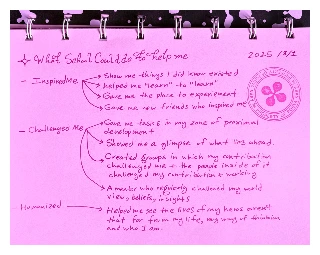 What School Could do to help me
2025/3/1
- Inspired Me
Show me things I did know existed
helped me "learn" to "learn"
Gave me the place to experiment
Gave me new friends who inspired me
- Challenges Me
Gave me tasks in my zone of proximal
development
Showed me a glimpse of what lies ahead.
Created groups in which my contribution
challenged me + the people inside of it
challenged my contribution + working
A mentor who regularly challenged my world
views, beliefs, insights
Humanized
Helped me see the lives of my
that far from my life, my way of thinking
and who I am.